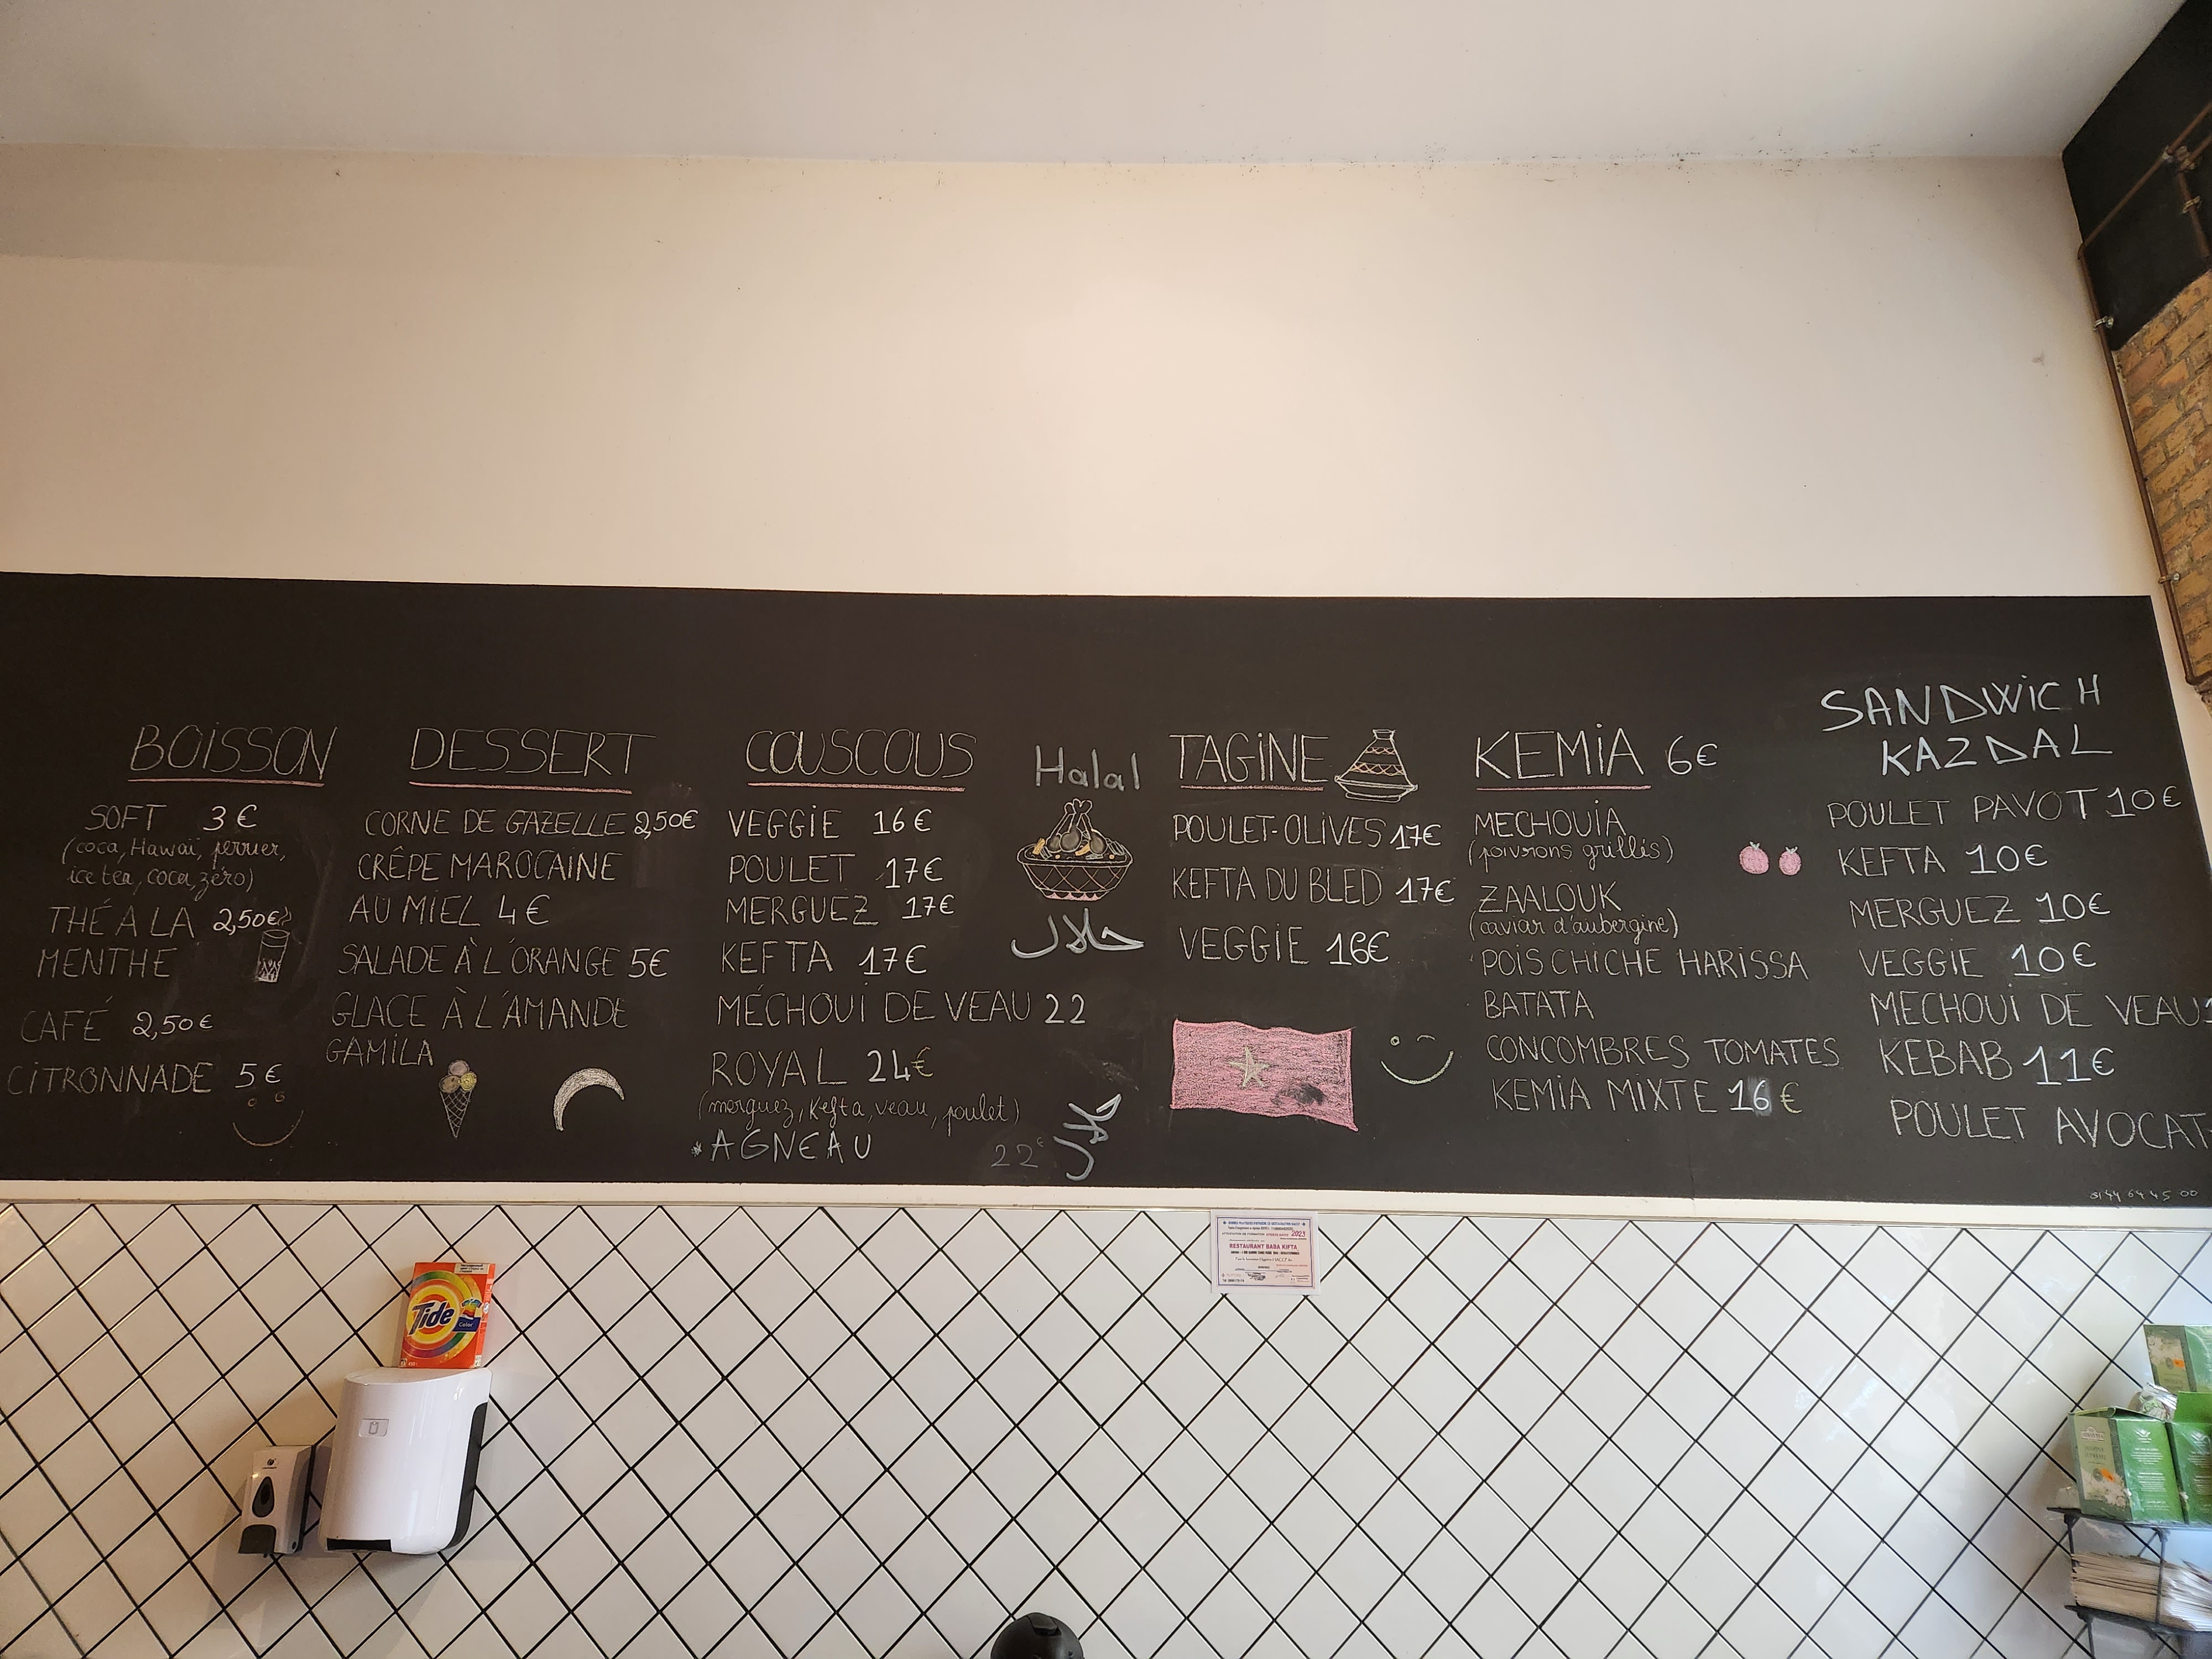 BOISSON
SOFT 3€
(coca, Hawai, perrier,
ice tea, coca, zero)
THÉ A LA 2,50€
MENTHE
CAFÉ 2,50€
CITRONNADE 5€
DESSERT
CORNE DE GAZELLE 2,50€
CRÊPE MAROCAINE
AU MIEL 4€
SALADE À L'ORANGE 5€
GLACE À L'AMANDE
GAMILA
COUSCOUS
VEGGIE 16€
POULET 17€
MERGUEZ 17€
KEFTA 17€
MÉCHOUI DE VEAU 22
ROYAL 24€
(merguez, Kefta, veau, poulet)
*AGNEAU 22€
Halal
حلال
حلال
TAGINE
POULET-OLIVES 17€
KEFTA DU BLED 17€
VEGGIE 16€
KEMIA 6€
MECHOUIA
(poivrons grillés)
ZAALOUK
(caviar d'aubergine)
POIS CHICHE HARISSA
BATATA
CONCOMBRES TOMATES
KEMIA MIXTE 16€
SANDWICH
KAZDAL
POULET PAVOT 10€
KEFTA 10€
MERGUEZ 10€
VEGGIE 10€
MECHOUI DE VEAU
KEBAB 11€
POULET AVOCAT
01 44 64 45 00
2023
RESTAURANT BABA KIFTA
Tide
Color